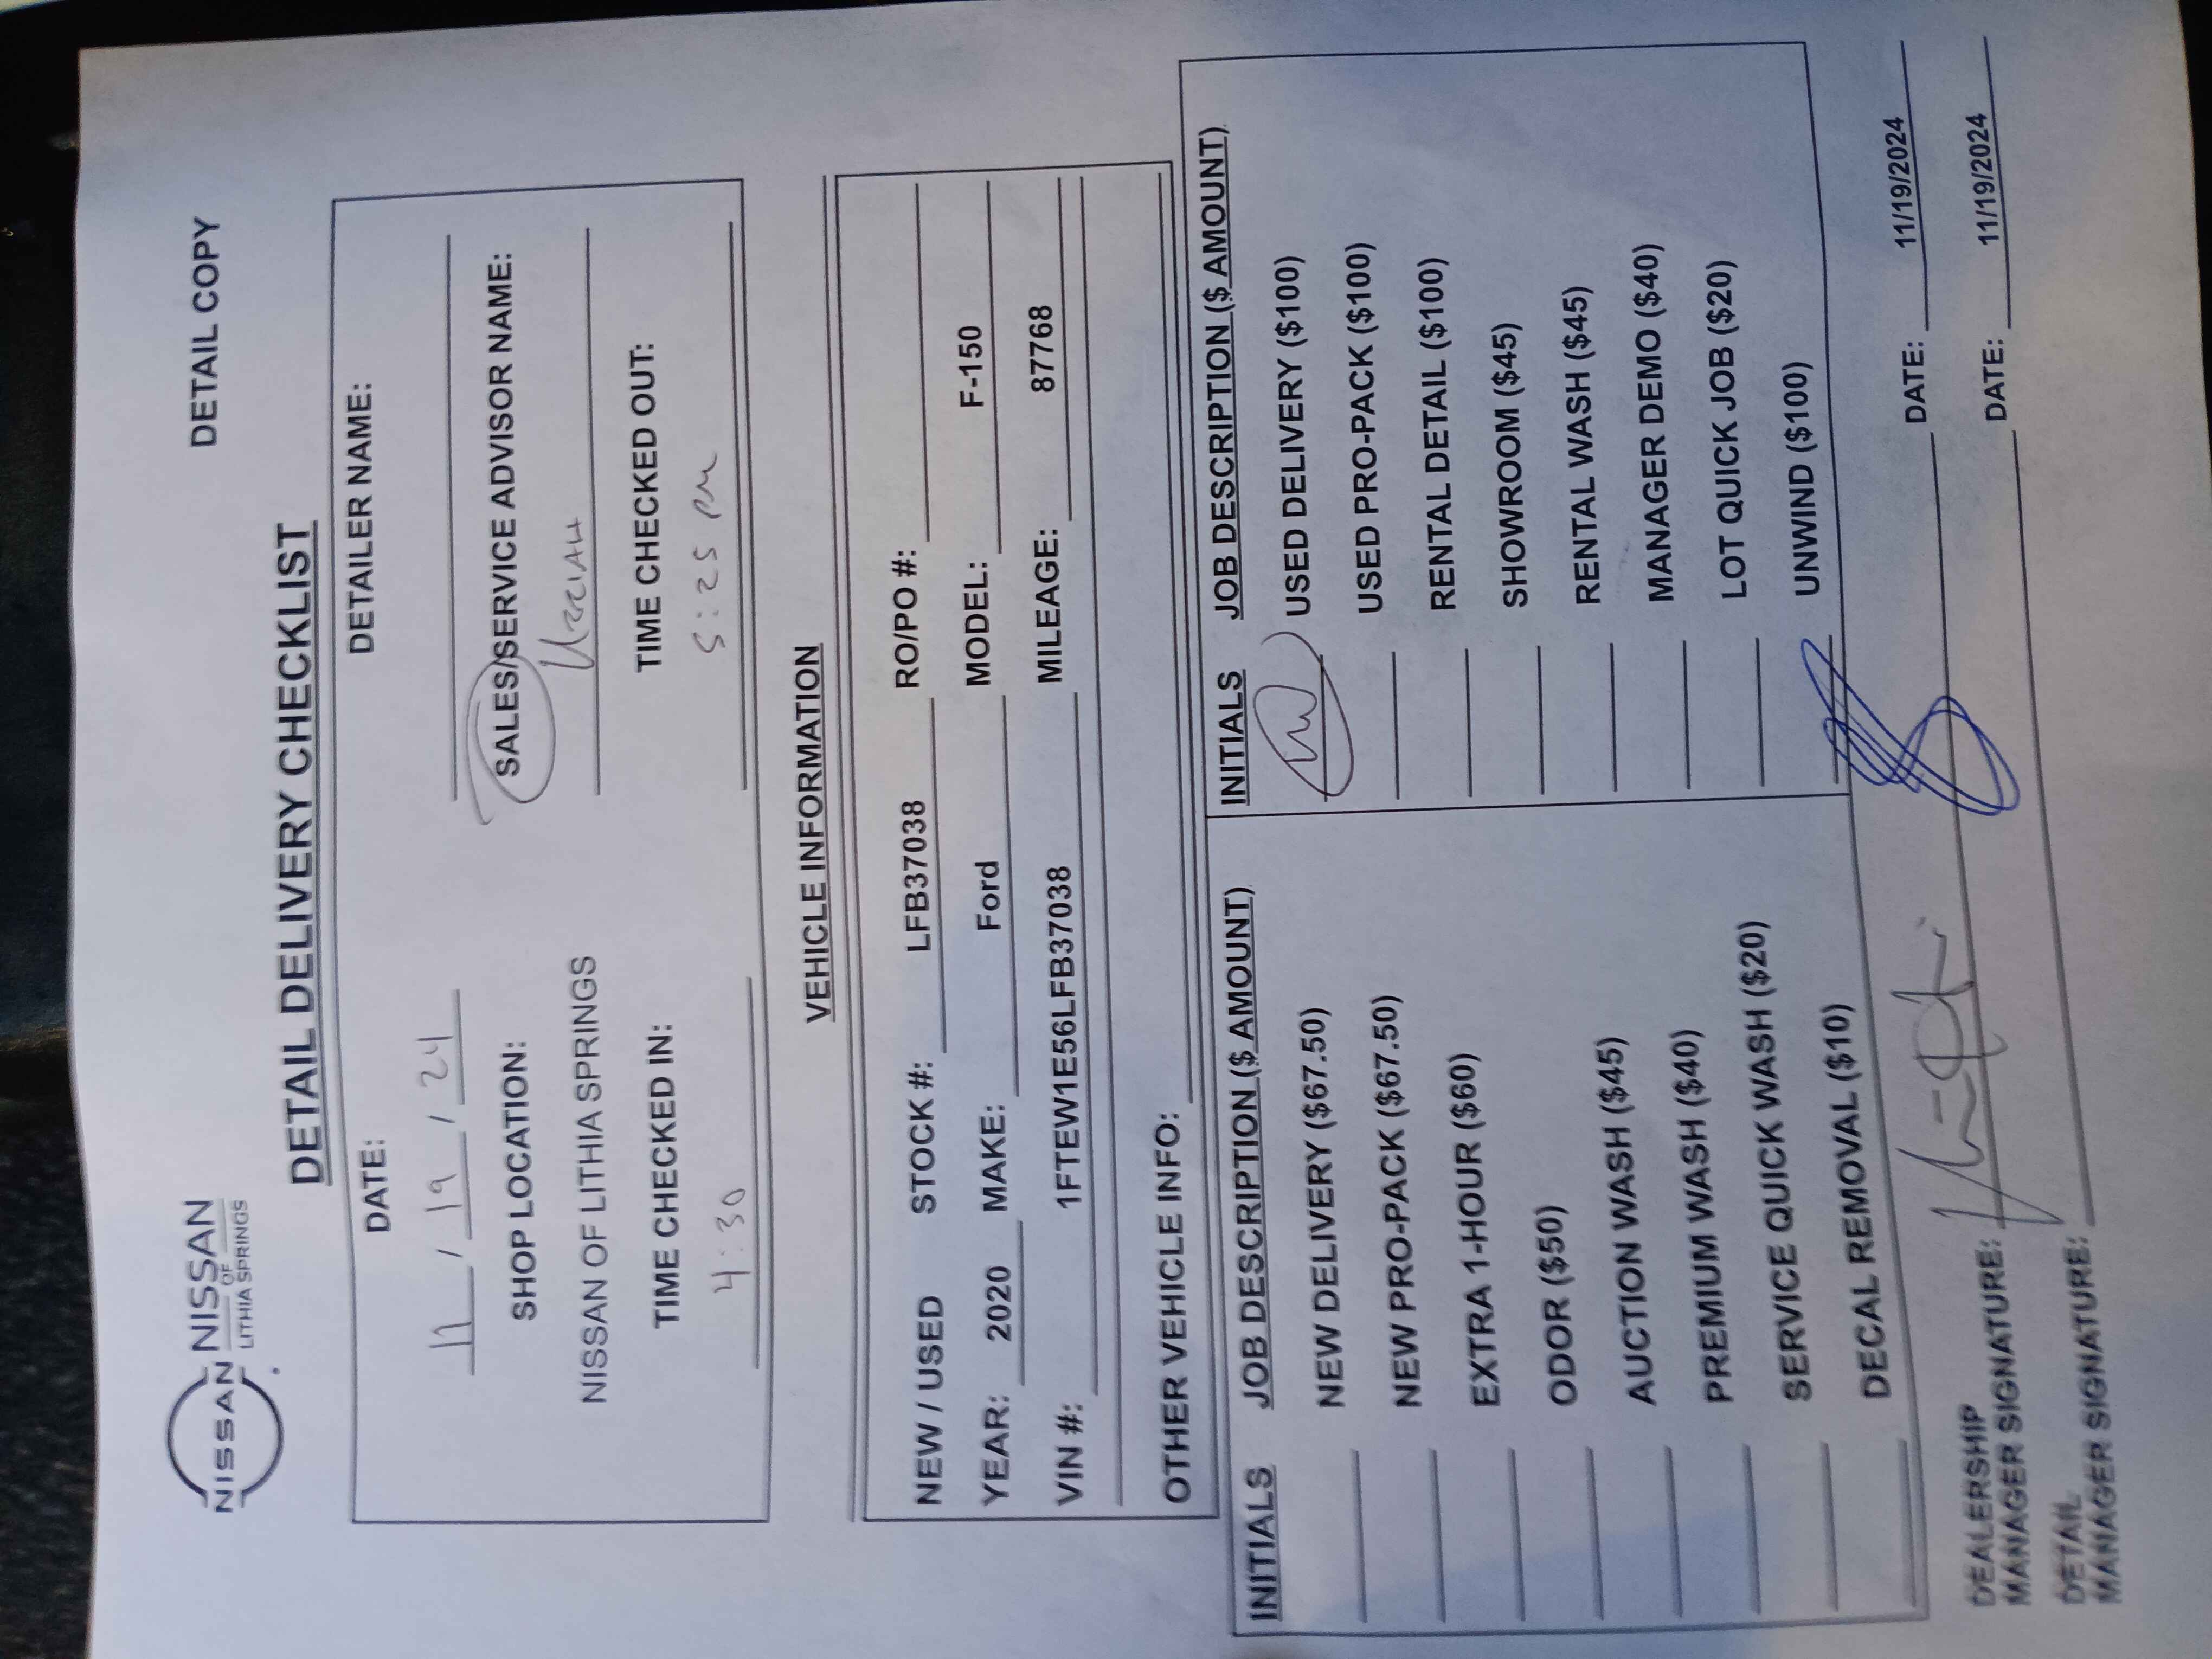 NISSAN NISSAN
OF
LITHIA SPRINGS
DETAIL COPY
DETAIL DELIVERY CHECKLIST
DATE: DETAILER NAME:
11 / 19 / 24
SHOP LOCATION: SALES/SERVICE ADVISOR NAME:
NISSAN OF LITHIA SPRINGS Uzziah
TIME CHECKED IN: TIME CHECKED OUT:
4:30 5:25 PM
VEHICLE INFORMATION
NEW / USED STOCK #: LFB37038 RO/PO #:
YEAR: 2020 MAKE: Ford MODEL: F-150
VIN #: 1FTEW1E56LFB37038 MILEAGE: 87768
OTHER VEHICLE INFO:
INITIALS JOB DESCRIPTION ($ AMOUNT) INITIALS JOB DESCRIPTION ($ AMOUNT)
NEW DELIVERY ($67.50) USED DELIVERY ($100)
NEW PRO-PACK ($67.50) USED PRO-PACK ($100)
EXTRA 1-HOUR ($60) RENTAL DETAIL ($100)
ODOR ($50) SHOWROOM ($45)
AUCTION WASH ($45) RENTAL WASH ($45)
PREMIUM WASH ($40) MANAGER DEMO ($40)
SERVICE QUICK WASH ($20) LOT QUICK JOB ($20)
DECAL REMOVAL ($10) UNWIND ($100)
DEALERSHIP
MANAGER SIGNATURE: DATE: 11/19/2024
DETAIL
MANAGER SIGNATURE: DATE: 11/19/2024